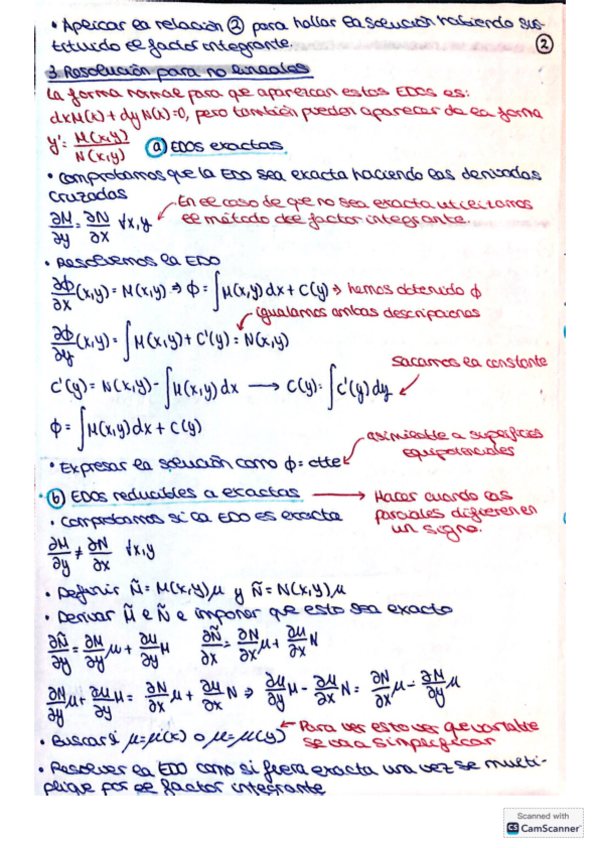 • Aplicar la relación ② para hallar la solución habiendo sus-
tituido el factor integrante.
②
3. Resolución para no lineales
La forma normal para que aparezcan estas EDOS es:
dxM(x)+dyN(x)=0, pero también pueden aparecer de la forma
y'= M(x,y)/N(x,y)
ⓐ EDOS exactas
• Comprobamos que la EDO sea exacta haciendo las derivadas
cruzadas
∂M/∂y = ∂N/∂x ∀x,y
En el caso de que no sea exacta utilizamos
el método del factor integrante.
• Resolvemos la EDO
∂ϕ/∂x (x,y) = M(x,y) ⇒ ϕ = ∫M(x,y)dx + C(y) ⇒ hemos obtenido ϕ
igualamos ambas descripciones
∂ϕ/∂y (x,y) = ∫M(x,y) + C'(y) = N(x,y)
sacamos la constante
C'(y) = N(x,y) - ∫M(x,y)dx → C(y) = ∫C'(y)dy
ϕ = ∫M(x,y)dx + C(y)
asimilable a superficies
equipotenciales
• Expresar la solución como ϕ = ctte
ⓑ EDOS reducibles a exactas → Hacer cuando las
parciales difieren en
un signo.
• Comprobamos si la EDO es exacta
∂M/∂y ≠ ∂N/∂x ∀x,y
• Definir Ñ = M(x,y)μ y Ñ = N(x,y)μ
• Derivar M̃ e Ñ e imponer que esto sea exacto
∂Ñ/∂y = ∂M/∂y μ + ∂μ/∂y M ∂Ñ/∂x = ∂N/∂x μ + ∂μ/∂x N
∂M/∂y μ + ∂μ/∂y M = ∂N/∂x μ + ∂μ/∂x N ⇒ ∂μ/∂y M - ∂μ/∂x N = ∂N/∂x μ - ∂M/∂y μ
• Buscar si μ=μ(x) o μ=μ(y)
Para ver esto ver que variable
se va a simplificar
• Resolver la EDO como si fuera exacta una vez se multi-
plique por el factor integrante
Scanned with
CS CamScanner